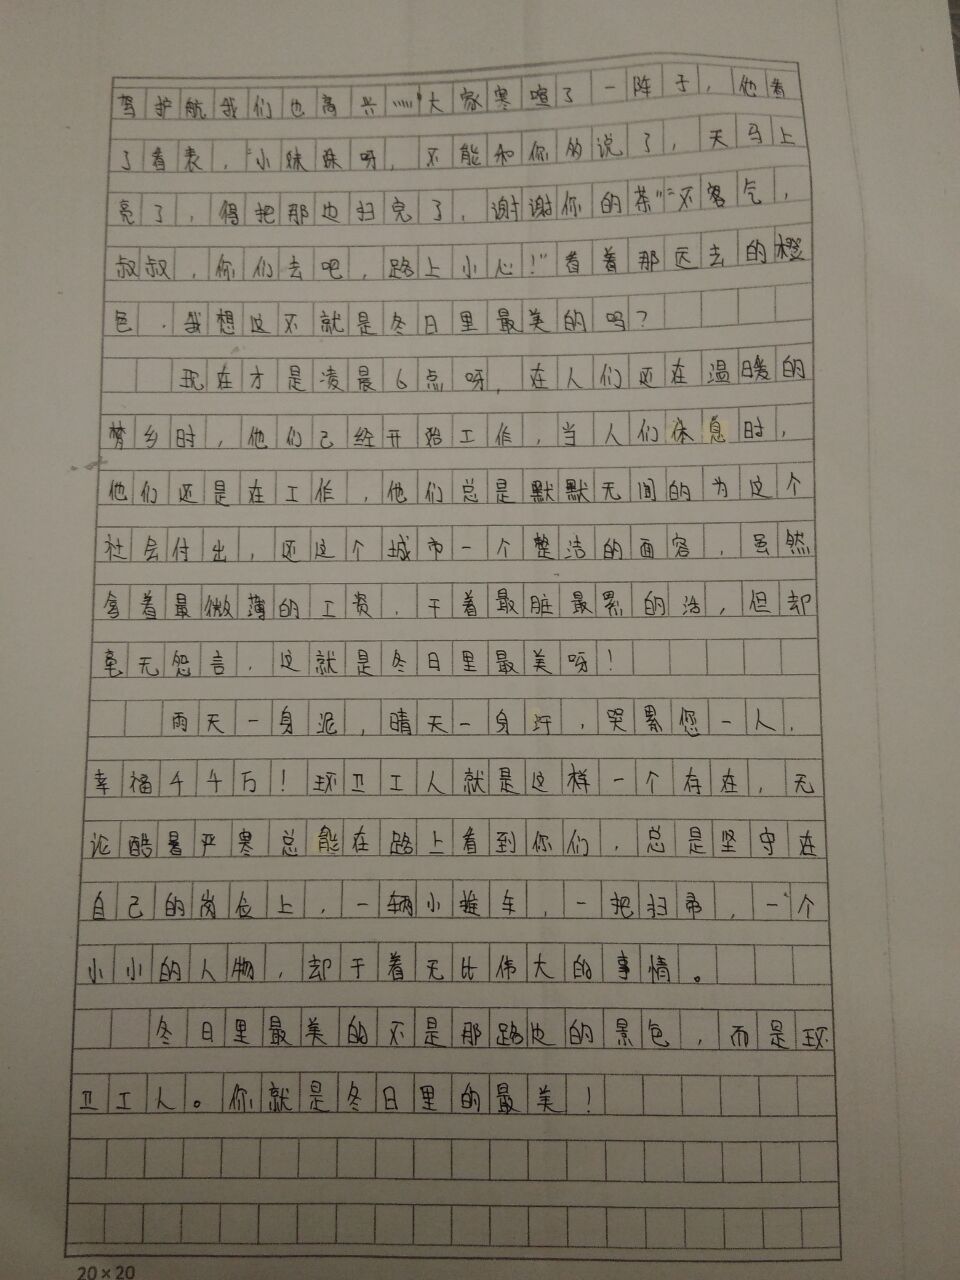 驾护航我们也高兴……"大家寒喧了一阵子，他看
了看表，"小妹妹呀，不能和你的说了，天马上
亮了，得把那边扫完了，谢谢你的茶""不客气，
叔叔，你们去吧，路上小心！"看着那远去的橙
色，我想这不就是冬日里最美的吗？
现在才是凌晨6点呀，在人们还在温暖的
梦乡时，他们已经开始工作，当人们休息时，
他们还是在工作，他们总是默默无闻的为这个
社会付出，还这个城市一个整洁的面容，虽然
拿着最微薄的工资，干着最脏最累的活，但却
毫无怨言，这就是冬日里最美呀！
雨天一身泥，晴天一身汗，哭累您一人，
幸福千千万！环卫工人就是这样一个存在，无
论酷暑严寒总能在路上看到你们，总是坚守在
自己的岗位上，一辆小推车，一把扫帚，一个
小小的人物，却干着无比伟大的事情。
冬日里最美的不是那路边的景色，而是环
卫工人。你就是冬日里的最美！
20×20